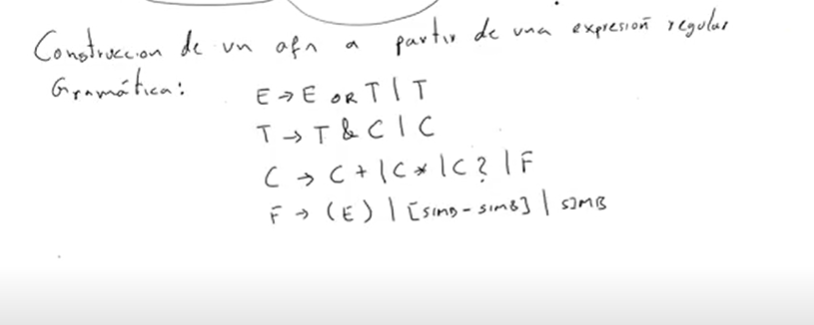 Construccion de un afn a partir de una expresión regular
Gramática:
E → E OR T | T
T → T & C | C
C → C + | C * | C ? | F
F → (E) | [SIMB - SIMB] | SIMB